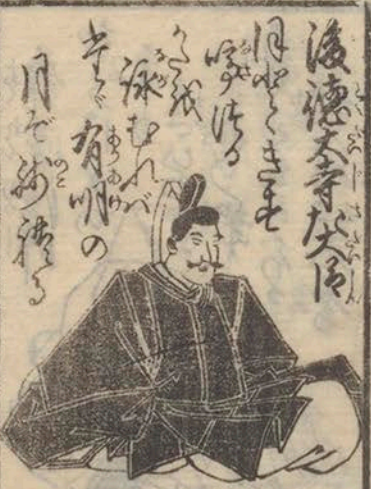 後徳大寺左大臣
ほとゝきす
鳴つる
かたを
詠むれば
たゞ有明の
月ぞ残れる